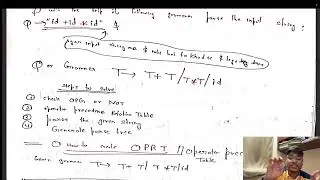 Q with the help of the following grammar parse the input string:
"id + id * id" $
Again input string me $ nahi hai to
Q or Grammar T → T + T / T * T / id
Steps to solve
① check OPG or NOT
② operator precedence Relation Table
③ parse the given string
④ Generate parse tree
① How to make OPRT // Operator prec Table
Given grammar T → T + T / T * T / id